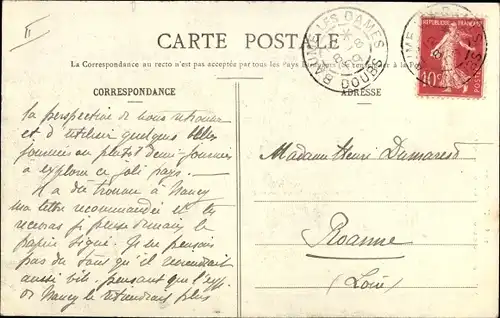 CARTE POSTALE
La Correspondance au recto n'est pas acceptée par tous les Pays
CORRESPONDANCE
ADRESSE
BAUME-LES-DAMES
DOUBS
RÉPUBLIQUE FRANÇAISE
10c
POSTES
la perspective de nous retrouver
et d'utiliser quelques belles
journées ou plutôt demi-journées
a explorer ce joli pays.
Il a du trouver à Nancy
ma lettre recommandée et tu
recevras je pense demain le
papier signé. Je ne pensais
pas du tout qu'il reviendrait
aussi vite pensant que l'
de Nancy le retiendrait plus
Madame Henri Dumarest
Roanne
(Loire)